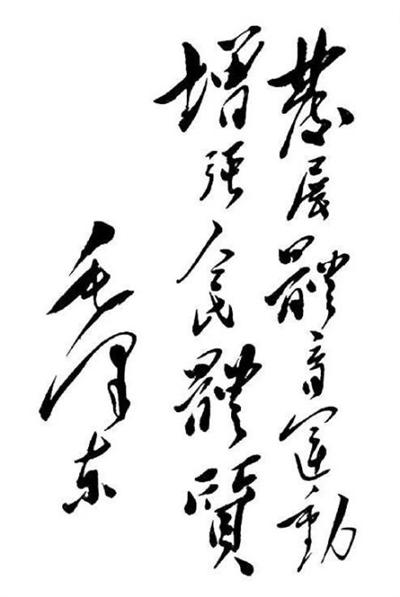 發展體育運動
增強人民體質
毛澤東